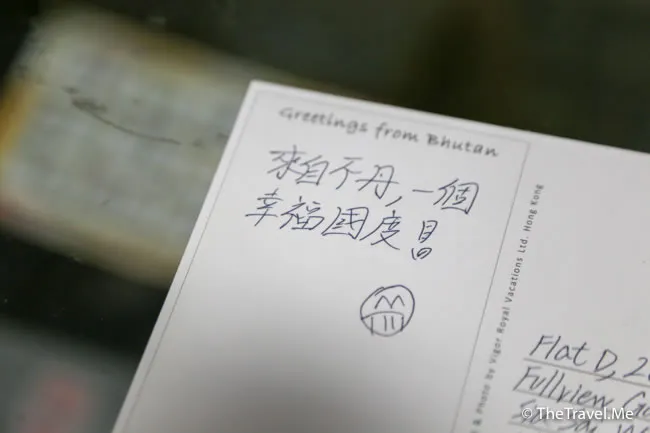 Greetings from Bhutan
來自不丹,一個
幸福國度
& Photo by Vigor Royal Vacations Ltd. Hong Kong
Flat D, 2
Fullview G
© TheTravel.Me